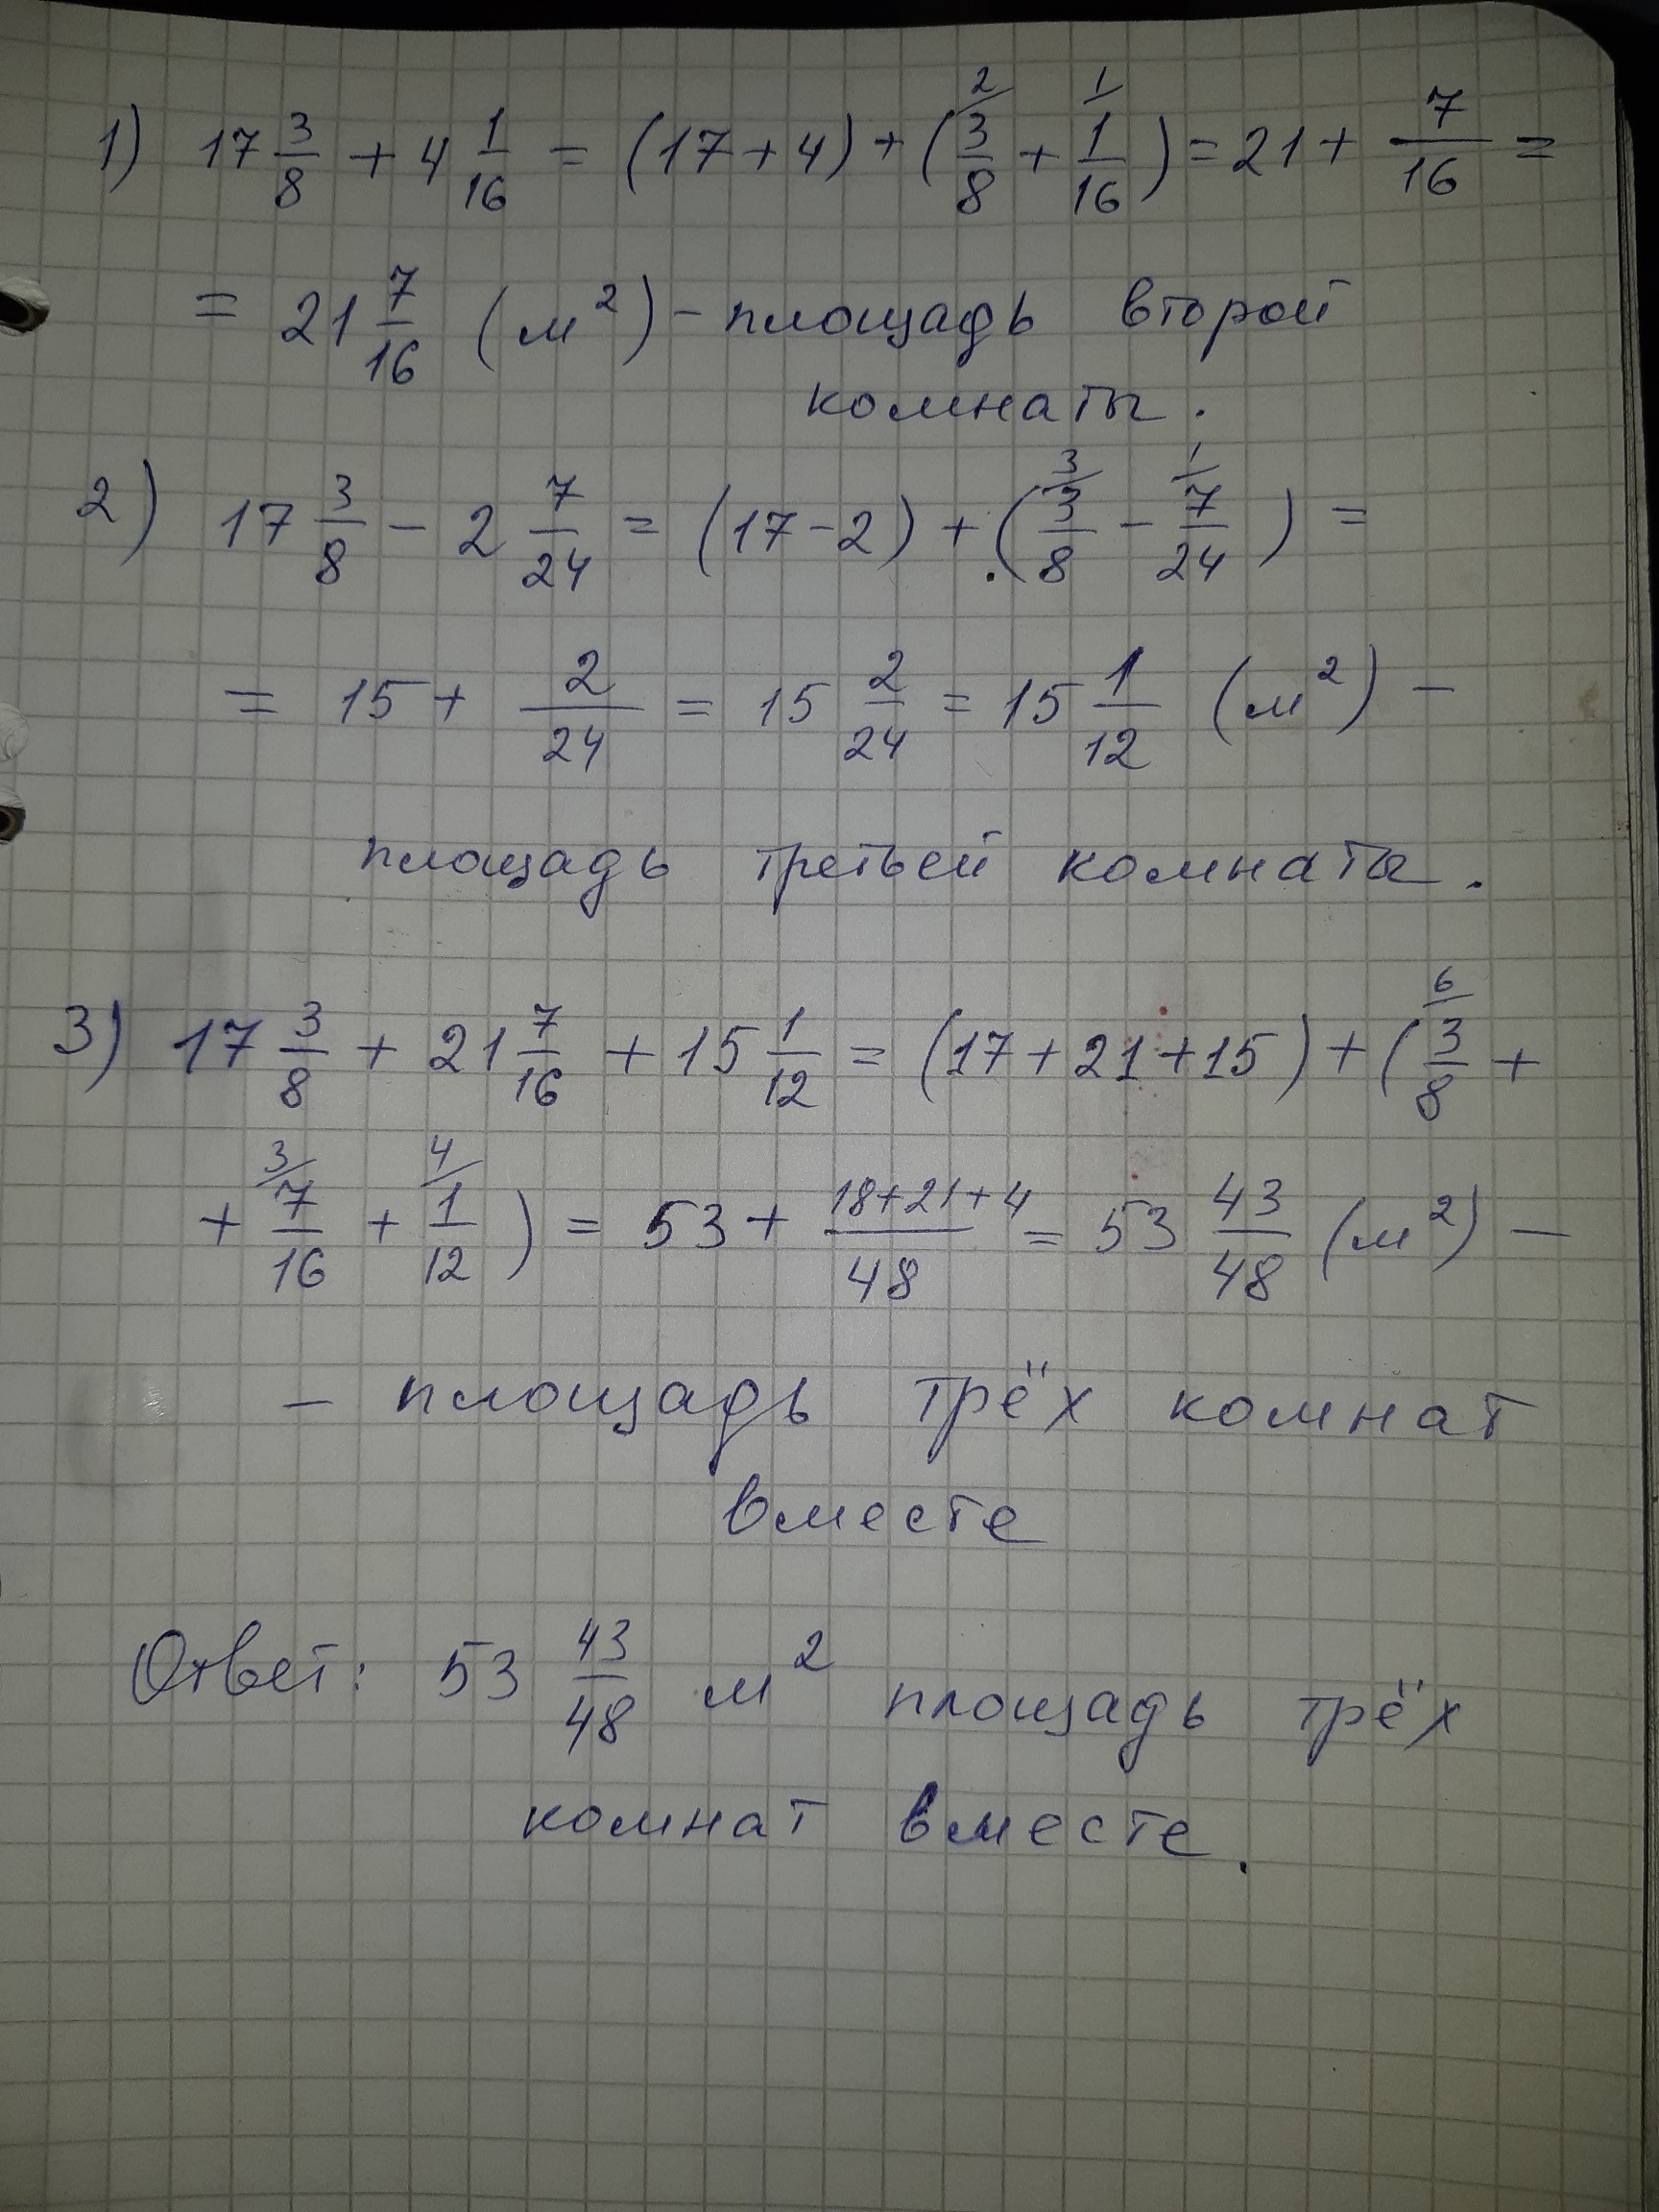 1) 17 3/8 + 4 1/16 = (17+4) + (²/3/8 + ¹/1/16) = 21 + 7/16 =
= 21 7/16 (м²) – площадь второй
комнаты.
2) 17 3/8 – 2 7/24 = (17–2) + (³/3/8 – ¹/7/24) =
= 15 + 2/24 = 15 2/24 = 15 1/12 (м²) –
площадь третьей комнаты.
3) 17 3/8 + 21 7/16 + 15 1/12 = (17+21+15) + (⁶/3/8 +
+ ³/7/16 + ⁴/1/12) = 53 + 18+21+4/48 = 53 43/48 (м²) –
– площадь трёх комнат
вместе
Ответ: 53 43/48 м² площадь трёх
комнат вместе.